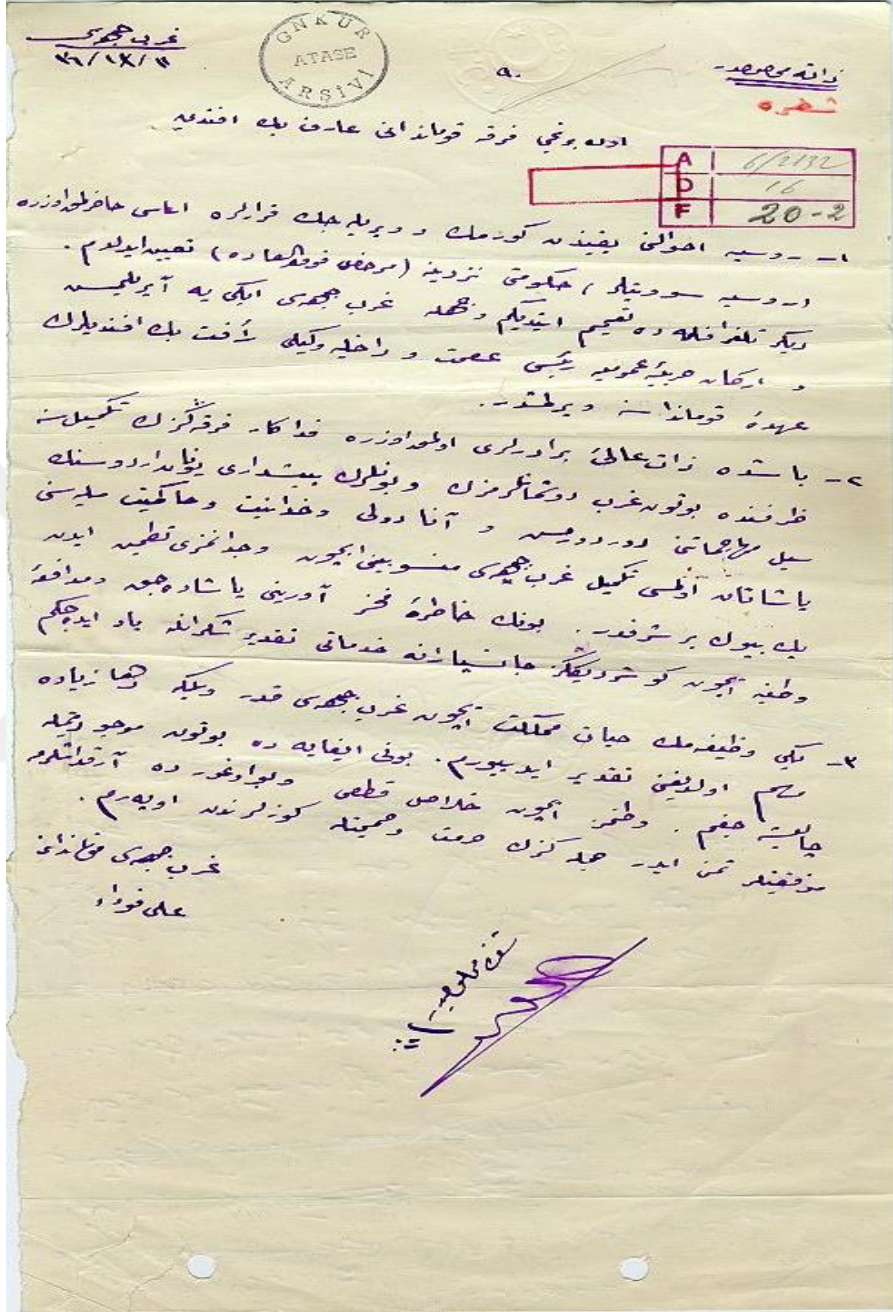 غرب جبهه‌سی
٣٦/١١/١٢
GNKUR
ATASE
ARŞİVİ
ذاته مخصوصدر
شفره
اون برنجی فرقه قوماندانی عارف بك افندی‌یه
A 6/2132
D 16
F 20-2
١- روسیه احوالنی یقیندن کورمك و ویریله‌جك قرارلره اساس حاضرلامق اوزره
(روسیه سوویتلر) حکومتی نزدینه (مرخص فوق العاده) تعیین ایدلدم.
دیکر تلغرافله ده تعمیم ایتدیکم وجهله غرب جبهه‌سی ایکی یه آیریلمش
و اركان حربیهٔ عمومیه رئیسی عصمت و داخلیه وکیلی رأفت بك افندیلرك
عهدهٔ قومانداسنه ویرلمشدر.
٢- باشده ذات عالیٔ برادرلری اولمق اوزره فداکار فرقه‌ڭزك تکمیلنه
ظرفنده بوتون غرب دوشمانلرمزك و بونلرك پیشداری یونان اردوسنك
سیل مهاجماتنی دوردورمش و آنادولی وحدانیت و حاکمیت ملیه‌سنی
یاشاتان اولمسی تکمیل غرب جبهه‌سی منسوبینی ایچون وجدانمزی تطمین ایدن
پك بیوك بر شرفدر. بونك خاطرهٔ فخر آورینی یاشاده‌جق و مدافعهٔ
وطنیه ایچون کوستردیککز جانسپارانه خدماتی تقدیر و شکرانله یاد ایده‌جکم
٣- یکی وظیفه‌مك حیات مملکت ایچون غرب جبهه‌سی قدر وبلکه دها زیاده
مهم اولدیغنی تقدیر ایدییورم. بونی ایفایه ده بوتون موجودیتمله
چالیشه‌جغم. وطنمز ایچون خلاص قطعی و بو اوغورده آرقداشلرمه
موفقیتلر تمنی ایدر جمله‌کزك حرمت و صمیمتله کوزلرندن اوپه‌رم.
غرب جبهه‌سی قوماندانی
علی فؤاد